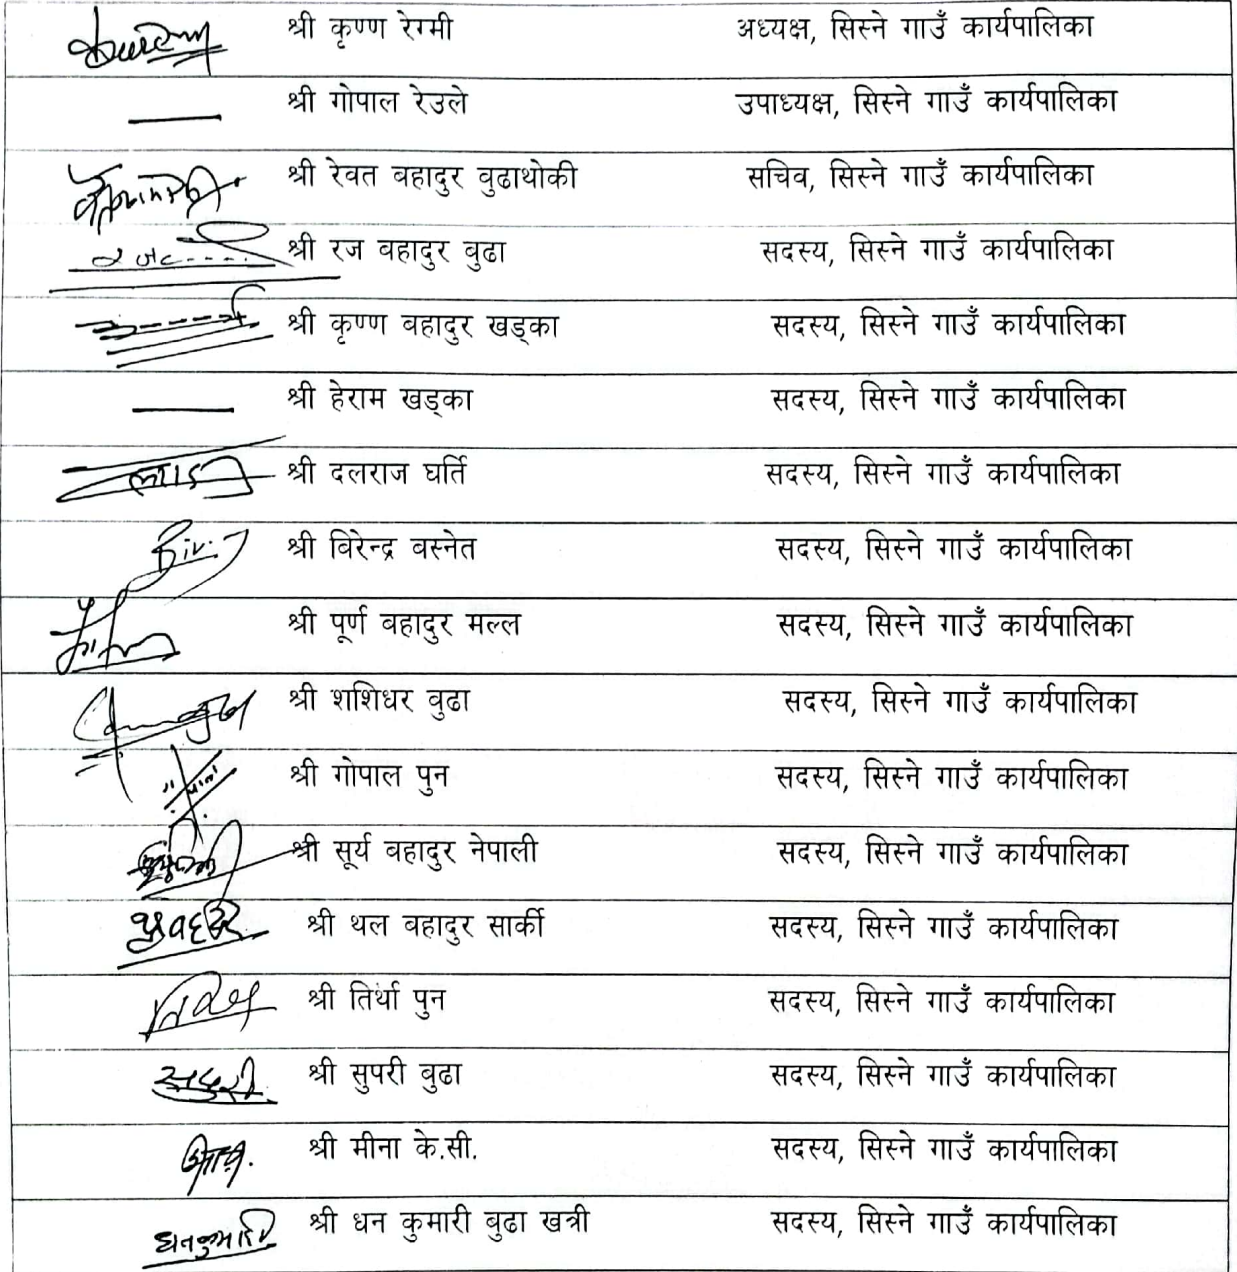 श्री कृष्ण रेग्मी अध्यक्ष, सिस्ने गाउँ कार्यपालिका
श्री गोपाल रेउले उपाध्यक्ष, सिस्ने गाउँ कार्यपालिका
श्री रेवत बहादुर वुढाथोकी सचिव, सिस्ने गाउँ कार्यपालिका
श्री रज बहादुर वुढा सदस्य, सिस्ने गाउँ कार्यपालिका
श्री कृष्ण बहादुर खड्का सदस्य, सिस्ने गाउँ कार्यपालिका
श्री हेराम खड्का सदस्य, सिस्ने गाउँ कार्यपालिका
श्री दलराज घर्ति सदस्य, सिस्ने गाउँ कार्यपालिका
श्री विरेन्द्र वस्नेत सदस्य, सिस्ने गाउँ कार्यपालिका
श्री पूर्ण बहादुर मल्ल सदस्य, सिस्ने गाउँ कार्यपालिका
श्री शशिधर वुढा सदस्य, सिस्ने गाउँ कार्यपालिका
श्री गोपाल पुन सदस्य, सिस्ने गाउँ कार्यपालिका
श्री सूर्य बहादुर नेपाली सदस्य, सिस्ने गाउँ कार्यपालिका
श्री थल बहादुर सार्की सदस्य, सिस्ने गाउँ कार्यपालिका
श्री तिर्था पुन सदस्य, सिस्ने गाउँ कार्यपालिका
श्री सुपरी वुढा सदस्य, सिस्ने गाउँ कार्यपालिका
श्री मीना के.सी. सदस्य, सिस्ने गाउँ कार्यपालिका
धनकुमारी श्री धन कुमारी वुढा खत्री सदस्य, सिस्ने गाउँ कार्यपालिका